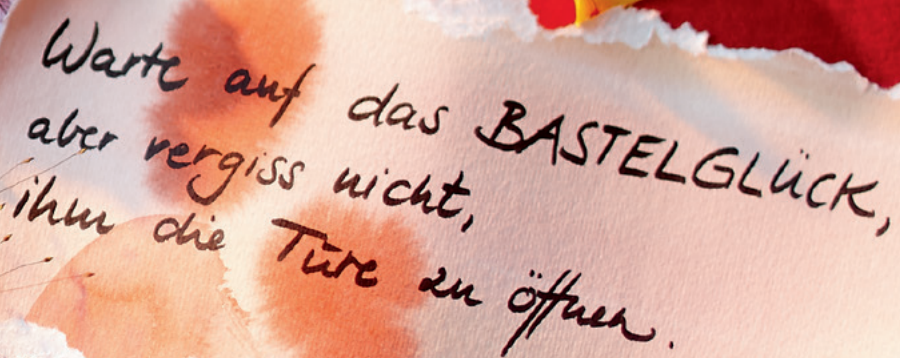 Warte auf das BASTELGLÜCK,
aber vergiss nicht,
ihm die Türe zu öffnen.